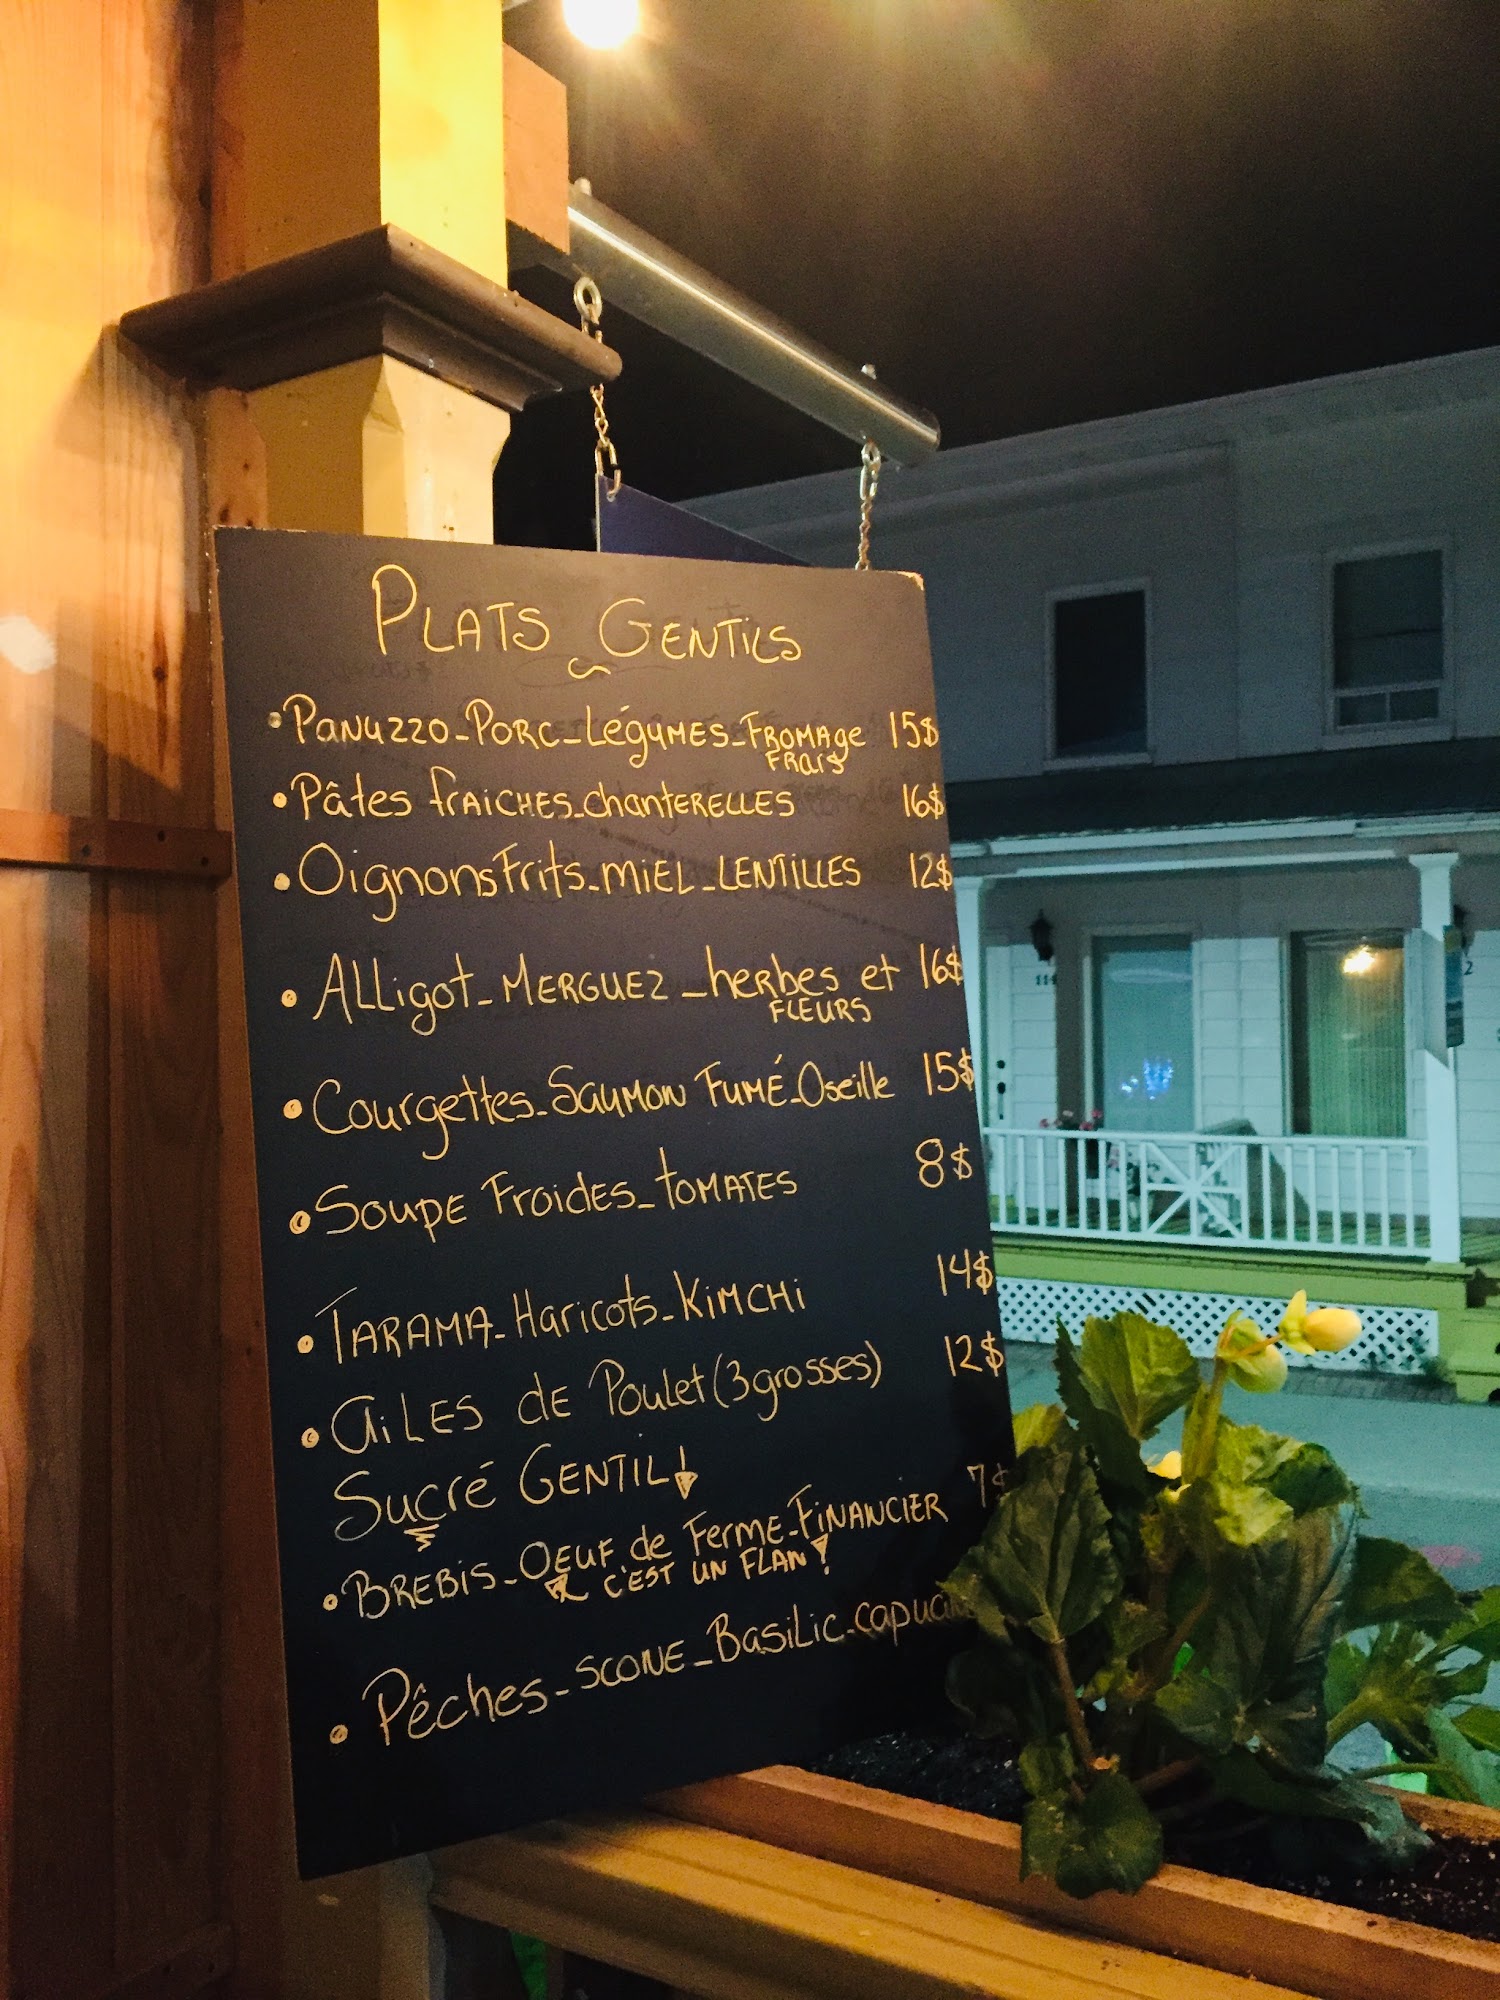 PLATS GENTILS
• PANUZZO_PORC_LégUMES_FROMAge 15$
FRAIS
• Pâtes fRAICHES_chanteRELLES 16$
• Oignons Frits_MIEL_LENTILLES 12$
• ALLigot_MERGUEZ_herbes et 16$
FLEURS
• Courgettes_SAUMON FUMÉ_Oseille 15$
• SOUPE Froides_tOMATES 8$
• TARAMA_Haricots_KiMCHi 14$
• AiLES dE Poulet (3 grosses) 12$
Sucré GENTIL!
• BREBIS_OEUF de FERME_FiNANCIER 7$
C'EST UN FLAN!
• Pêches_SCONE_BasiLic_
114
2